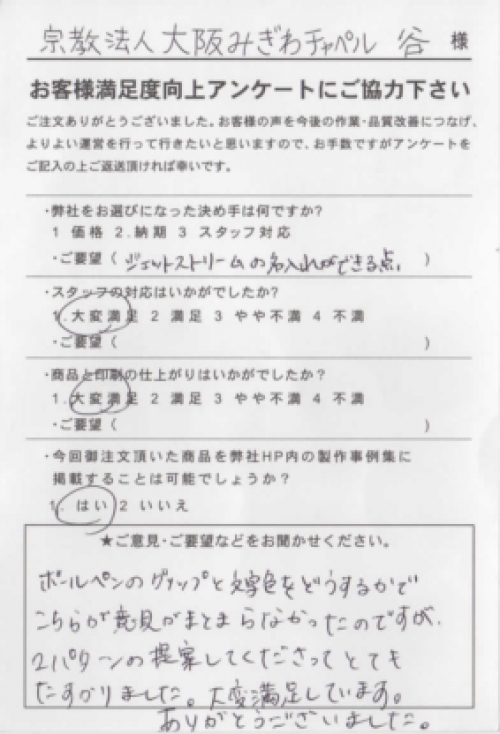 宗教法人大阪みぎわチャペル 谷 様
お客様満足度向上アンケートにご協力下さい
ご注文ありがとうございました。お客様の声を今後の作業・品質改善につなげ、
よりよい運営を行って行きたいと思いますので、お手数ですがアンケートを
ご記入の上ご返送頂ければ幸いです。
・弊社をお選びになった決め手は何ですか?
1 価格 2.納期 3 スタッフ対応
・ご要望 ( ジェットストリームの名入れができる点。 )
・スタッフの対応はいかがでしたか?
1.大変満足 2 満足 3 やや不満 4 不満
・ご要望 ( )
・商品と印刷の仕上がりはいかがでしたか?
1.大変満足 2 満足 3 やや不満 4 不満
・ご要望 ( )
・今回御注文頂いた商品を弊社HP内の製作事例集に
掲載することは可能でしょうか?
1. はい 2 いいえ
★ご意見・ご要望などをお聞かせください。
ボールペンのグリップと文字色をどうするかで
こちらが意見がまとまらなかったのですが、
2パターンの提案してくださってとても
たすかりました。大変満足しています。
ありがとうございました。